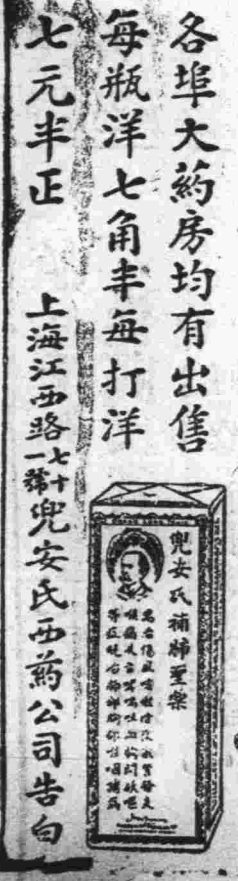 各埠大藥房均有出售
每瓶洋七角半每打洋
七元半正
上海江西路七十一號兜安氏西藥公司告白
兜安氏補肺聖藥